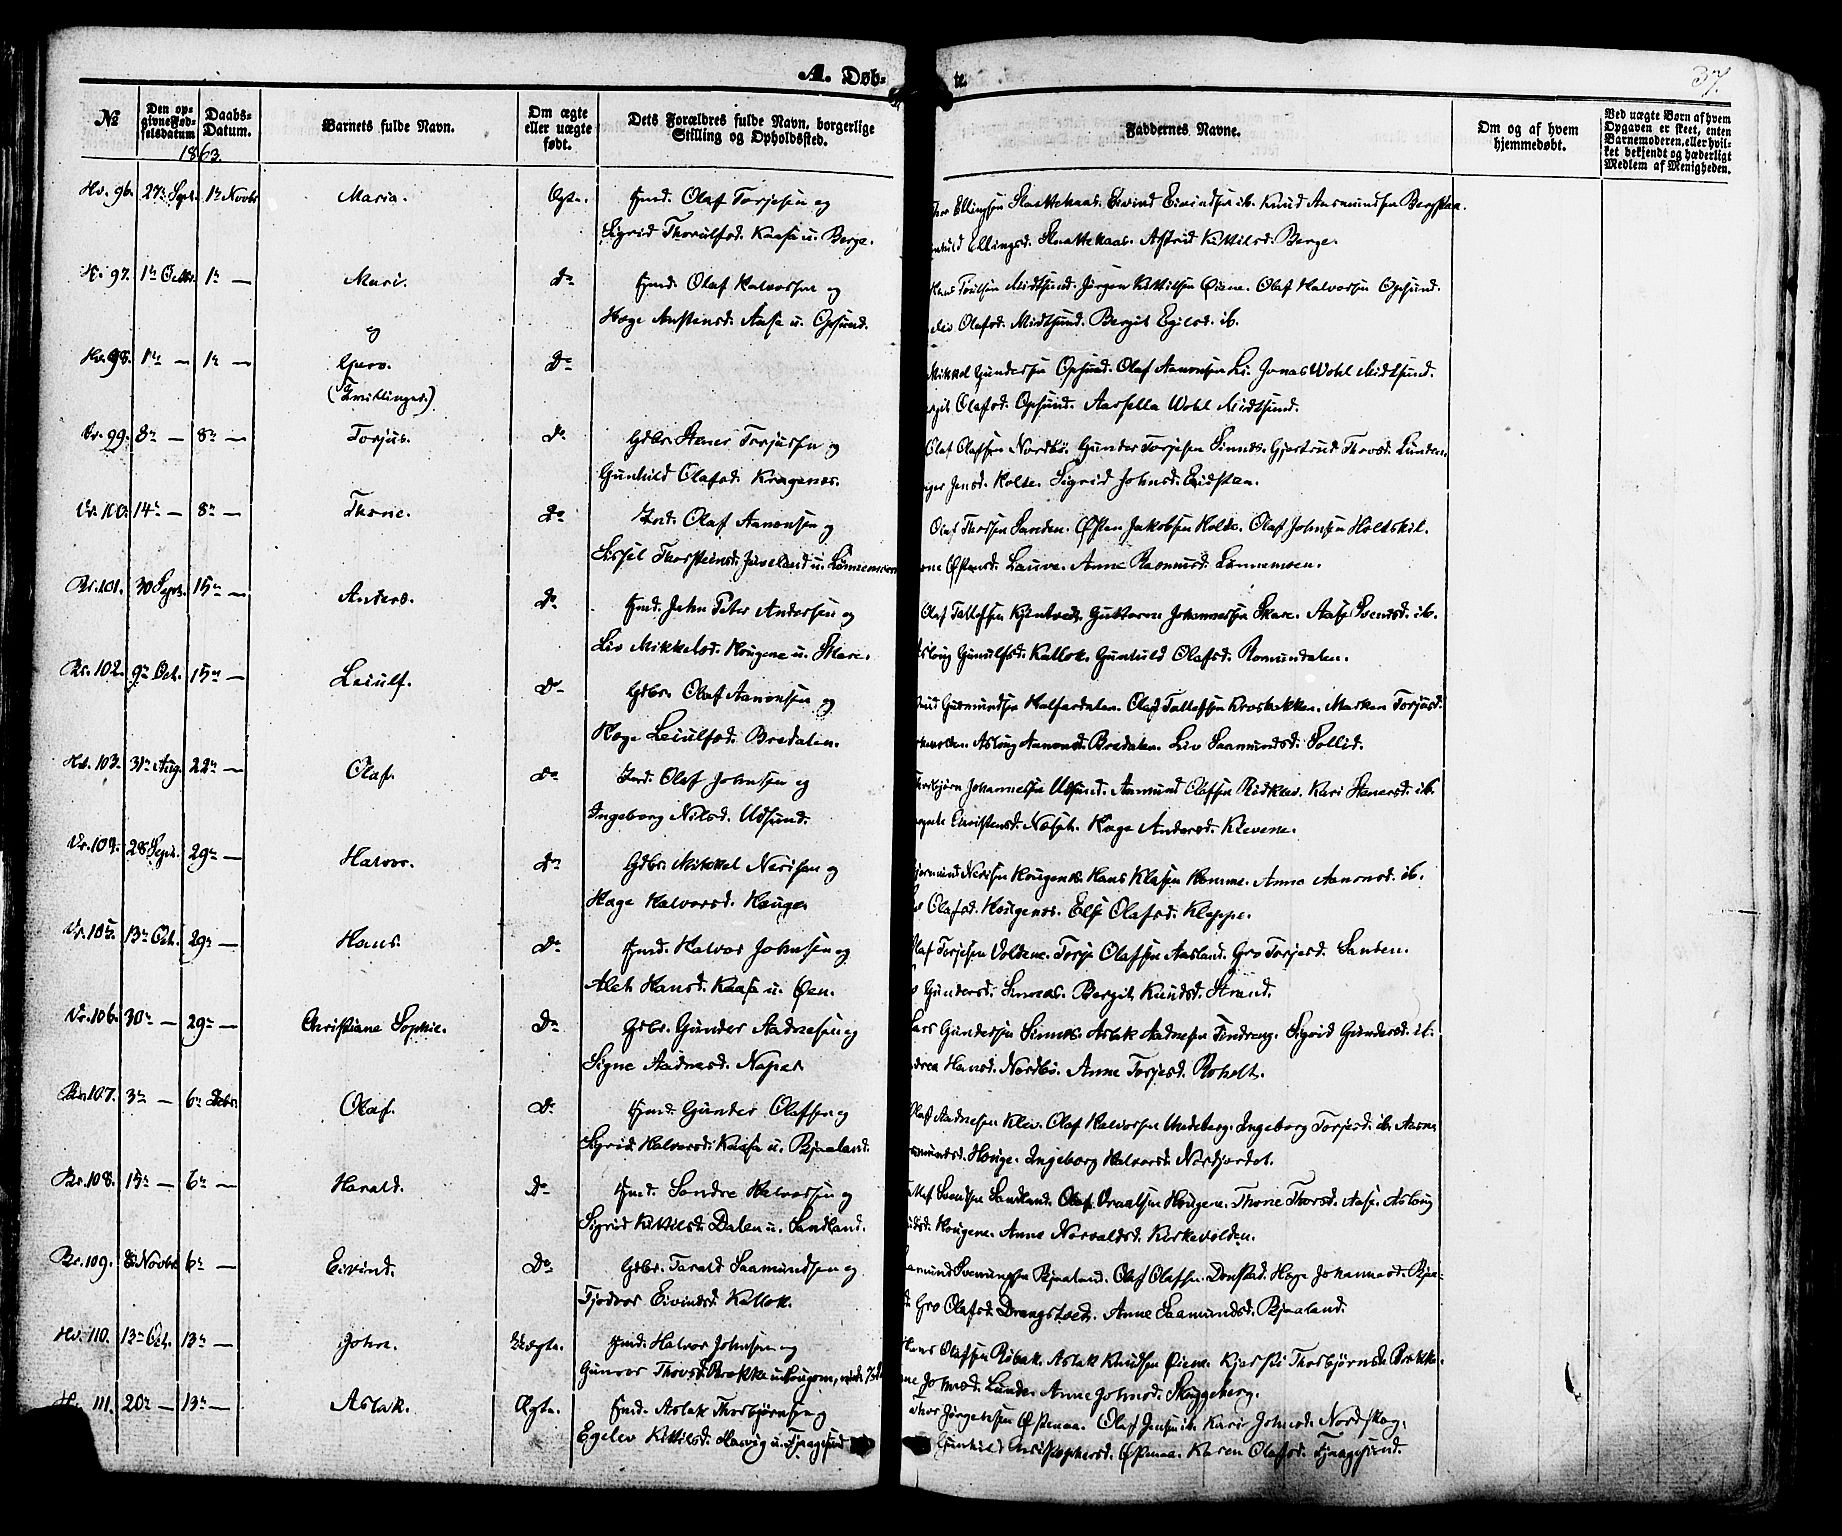 A. Døb- te. 37.
No
Den opgivne Fødselsdatum
Daabs-Datum.
Barnets fulde Navn.
Om ægte eller uægte født.
Dets Forældres fulde Navn, borgerlige Stilling og Opholdssted.
Faddernes Navne.
Om og af hvem hjemmedøbt.
Ved uægte Børn af hvem Opgaven er skeet, enten Barnemoderen, eller hvilket bekjendt og hæderligt Medlem af Menigheden.
1863.
Hv. 96. 27de Sept. 1ste Novbr Maria. Ægte. Hmd. Olaf Torjesen og
Sigrid Thorulfsd. Kaasa u. Berge.
Thor Ellingsen Slaattekaas. Eivind Eivindsen ib. Knud Aasmundsen
Ellingsd. Slaattekaas. Astrid Kittilsd. Berge.
97. 1ste Octbr. 1ste — Mari. Do Hmd. Olaf Halvorsen og
Hæge Austensd. Aasa u. Opsund.
Midtsund. Jørgen Kittilsen Øiene. Olaf Halvorsen Opsund.
Liv Olafsd. Midtsund. Bergit Egilsd. ib.
og
Hv. 98. 1ste — 1ste — Gjero. Do
(Tvillinger.)
Mikkel Gundersen Opsund. Olaf Aanonsen Li. Jonas Wohl Midtsund.
Olafsd. Opsund. Wohl Midtsund.
99. 8de — 8de — Torjus. Do Gdbr. Stener Torjussen og
Gunhild Olafsd. Kragenæs.
Olaf Olafsen Nordbø. Gunder Torjesen Sinnes. Gjertrud Thovsd. Lunden.
Jensd. Holte. Sigrid Johnsd. Eidstaa.
100. 14de — 8de — Thone. Do Olaf Aanonsen og
Sissel Thorsteinsd. Juveland u. Lønnemoen
Olaf Thorsen Sanden. Østen Jakobsen Holte. Olaf Johnsen Holtskil.
Østensd. Lauve. Anne Rasmusd. Lønnemoen.
101. 30 Sept. 15de — Anders. Do Hmd. John Peter Andersen og
Liv Mikkelsd. Hougene u. Skare.
Olaf Tallefsen Guttorm Johannessen Skare. Aase Svendsd. ib.
Asloug Gunulfsd. Kallok. Gunhuld Olafsd. Romundalen.
102. 9de Oct. 15de — Leiulf. Do Gdbr. Olaf Aanonsen og
Hæge Leiulfsd. Bredalen.
Gudmundsen Halfardalen. Olaf Tallefsen Krosbekken. Marken Torjusd.
Asloug Aanonsd. Bredalen. Liv Saamundsd. Sollid.
103. 31te Aug. 22de — Olaf. Do Olaf Johnsen og
Ingeborg Nilsd. Udsund.
Thorbjørn Johannessen Udsund. Aanmund Olafsen Kari Stenersd. ib.
Christensd. Næset. Hæge Andersd. Klevene.
104. 28 Sept. 29de — Halvor. Do Gdbr. Mikkel Nerisen og
Hæge Halvorsd. Hauge.
Nerisen Hougene. Hans Klasen Homme. Anne Aanonsd. ib.
Olafsd. Hougene. Else Olafsd. Kleppe.
105. 13de Oct. 29de — Hans. Do Hmd. Halvor Johnsen og
Alet Hansd. Kaasa u. Øen.
Olaf Torjesen Voldene. Torje Olafsen Aasland. Gro Torjesd. Sanden.
Gundersd. Sinnes. Bergit Knudsd. Strand.
106. 30te — 29de — Christiane Sophie. Do Gdbr. Gunder Aadnesen og
Signe Aadnesd. Naper
Lars Gundersen Sinnes. Aslak Aadnesen Tindreng. Sigrid Gundersd. ib.
Hansd. Nordbø. Anne Torjesd. Roholt.
107. 3de — 6te Decbr. Olaf. Do Hmd. Gunder Olafsen og
Sigrid Halvorsd. Kaasa u. Bjaaland.
Olaf Aadnesen Klev. Olaf Halvorsen Undeberg. Ingeborg Torjesd. ib.
Houge. Ingeborg Halvorsd. Nordjordet.
108. 15de — 6te — Harald. Do Hmd. Sondre Halvorsen og
Sigrid Kittilsd. Dalen u. Sandland.
Svendsen Sandland. Olaf Vraalsen Hougene. Thone Thorsd. Aase. Aslaug
Hougene. Anne Norvaldsd. Kirkevolden.
109. 8 Novbr 6te — Eivind. Do Gdbr. Tarald Saamundsen og
Tjodvor Eivindsd. Kallok.
Sveinungsen Bjaaland. Olaf Olafsen Donstad. Hæge Johannesd.
Gro Olafsd. Drangstvet. Anne Saamundsd. Bjaaland.
Hv. 110. 13de Oct. 13de — John. Uægte. Hmd. Halvor Johnsen og
Gunvor Thovsd. Brekke
Hans Olafsen Aslak Knudsen Øiene. Kjersti Thorbjørnsd. Brekke
Johnsd. Lunde. Anne Johnsd. Skuggeberg.
111. 20de — 13de — Aslak. Ægte. Hmd. Aslak Thorbjørnsen og
Egelev Kittilsd. Tjaagesund
Jørgensen Østenaa. Olaf Jensen ib. Kari Johnsd. Nordskog.
Gunhild Christophersd. Østenaa. Karen Olafsd. Tjaagesund.